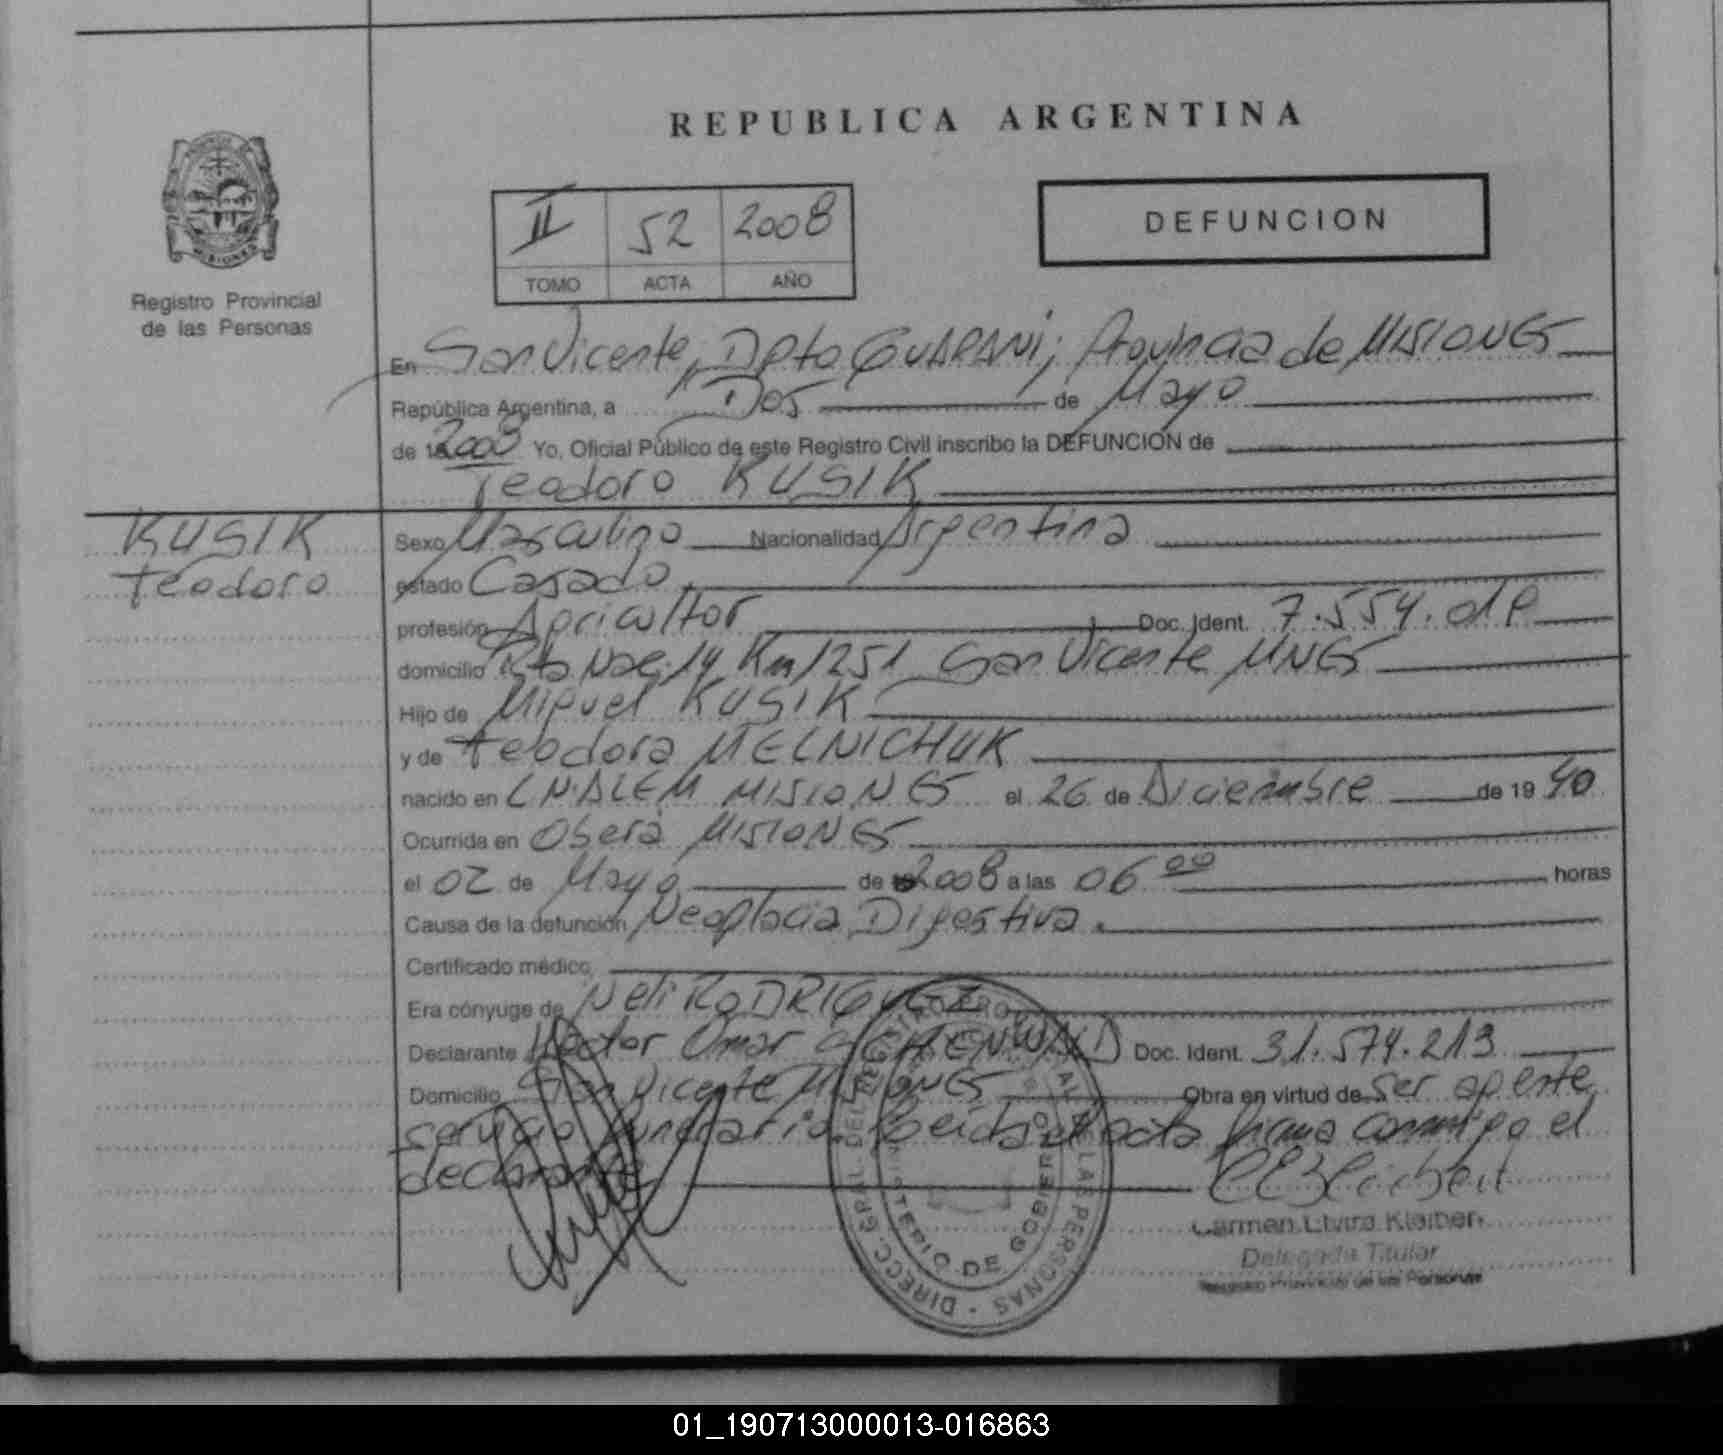 REPUBLICA ARGENTINA
MISIONES
Registro Provincial
de las Personas
II 52 2008
TOMO ACTA AÑO
DEFUNCION
En San Vicente, Dpto GUARANI; Provincia de MISIONES
República Argentina, a Dos de Mayo
de 2008 Yo, Oficial Público de este Registro Civil inscribo la DEFUNCION de
Teodoro KUSIK
KUSIK
Teodoro
Sexo Masculino Nacionalidad Argentina
estado Casado
profesión Agricultor Doc. Ident. 7.554.
domicilio Rta Nac. 14 Km 1251 San Vicente MNES
Hijo de Miguel KUSIK
y de Teodora MELNICHUK
nacido en L N. ALEM MISIONES el 26 de Diciembre de 1940
Ocurrida en Oberá MISIONES
el 02 de Mayo de 2008 a las 06 00 horas
Causa de la defunción Neoplacia Digestiva.
Certificado médico
Era cónyuge de Neli RODRIGUEZ
Declarante Hector Omar Doc. Ident. 31.574.213
Domicilio San Vicente MISIONES Obra en virtud de ser agente
servicio funerario. Leida el acta firma conmigo el
declarante
DIRECC. GRAL. DEL REGISTRO PROVINCIAL DE LAS PERSONAS
MINISTERIO DE GOBIERNO
Carmen Elvira Kleibert
Delegada Titular
Registro Provincial de las Personas
01_190713000013-016863